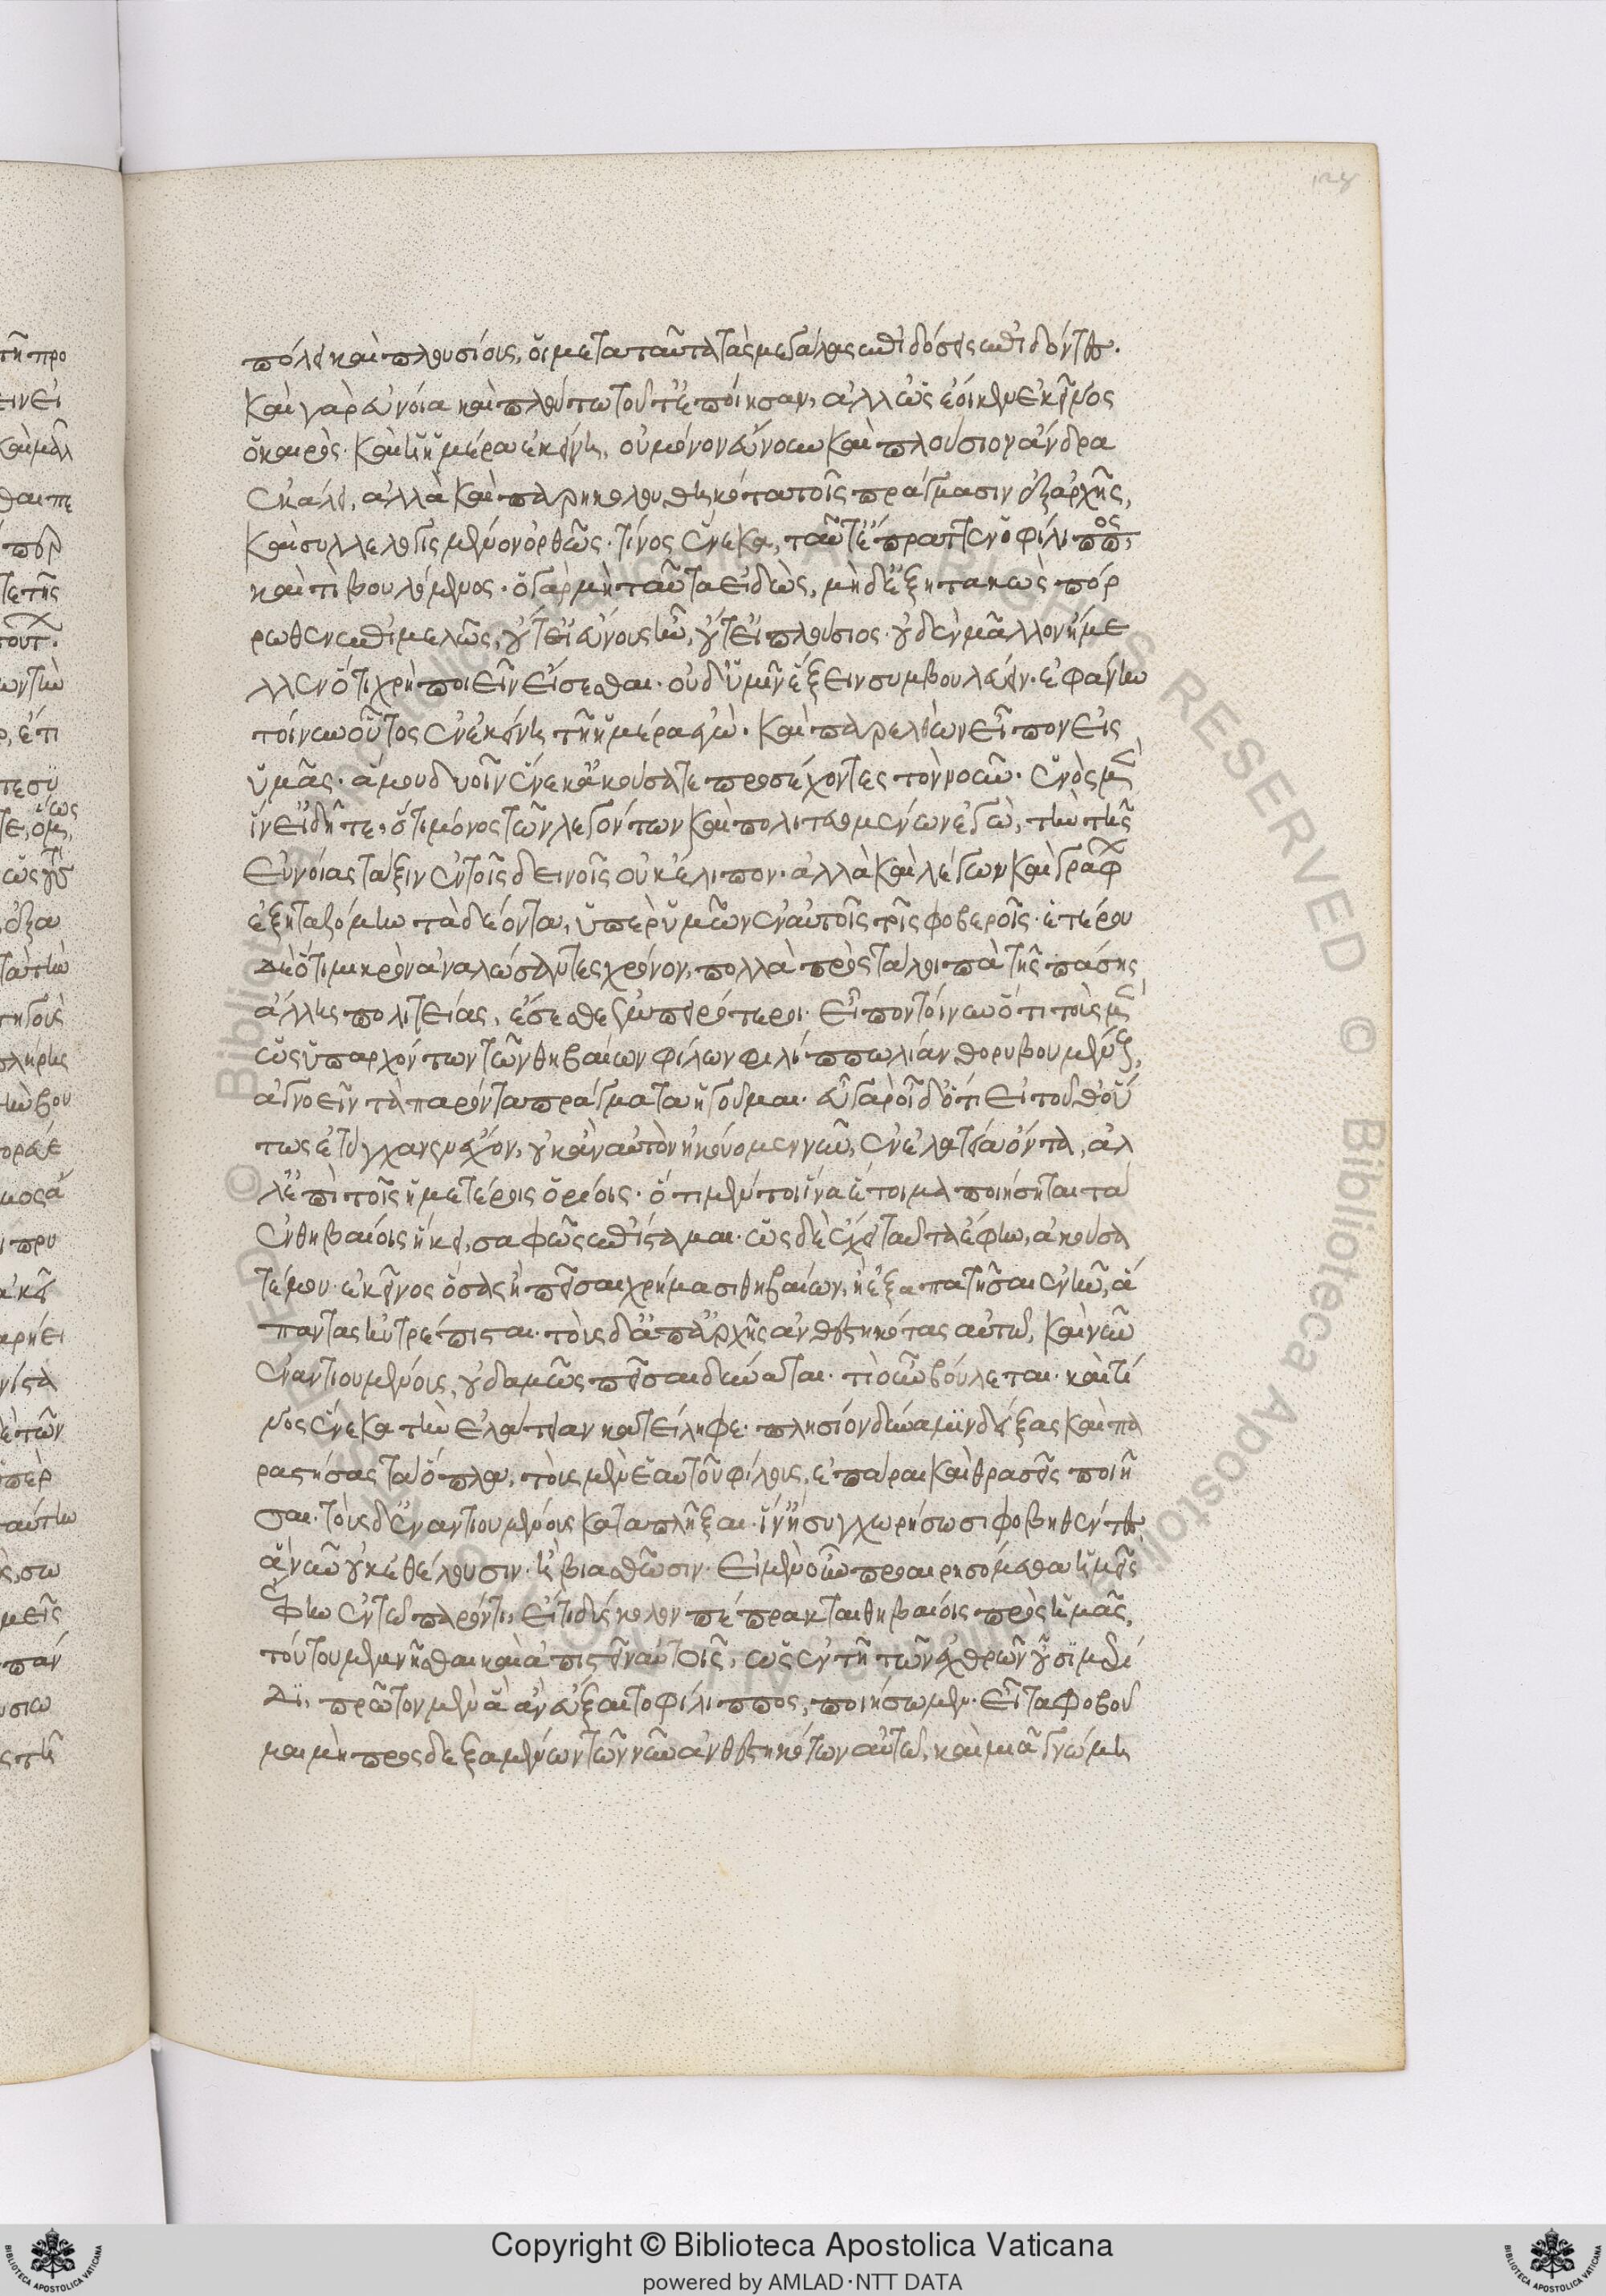 πόλει καὶ πλουσίοις, οἱ μετὰ ταῦτα τὰς μεγάλας ἐπιδόσεις ἐπιδόντες.
καὶ γὰρ εὐνοία καὶ πλούτω τοῦτ' ἐποίησαν, ἀλλ' ὡς ἔοικεν ἐκεῖνος
ὁ καιρὸς· καὶ ἡ ἡμέρα ἐκείνη, οὐ μόνον εὔνουν καὶ πλούσιον ἄνδρα
ἐκάλει, ἀλλὰ καὶ παρηκολουθηκότα τοῖς πράγμασιν ἐξαρχῆς,
καὶ συλλελογισμένον ὀρθῶς· τίνος ἕνεκα, ταῦτ' ἔπραττεν ὁ φίλιππος,
καὶ τί βουλόμενος· ὁ γὰρ μὴ ταῦτα εἰδὼς, μηδ' ἐξητακὼς πόρ
ρωθεν ἐπιμελῶς, οὔτ' εἰ εὔνους ἦν, οὔτ' εἰ πλούσιος· οὐδὲν μᾶλλον ἤμε
λλεν ὅτι χρὴ ποιεῖν εἴσεσθαι· οὐδ' ὑμῖν ἕξειν συμβουλεύειν· ἐφάνην
τοίνυν οὗτος ἐν ἐκείνη τῆ ἡμέρα ἐγὼ· καὶ παρελθὼν εἶπον εἰς
ὑμᾶς· ἅ μου δυοῖν ἕνεκ' ἀκούσατε προσέχοντες τὸν νοῦν· ἑνὸς μὲν
ἵν' εἰδῆτε, ὅτι μόνος τῶν λεγόντων καὶ πολιτευομένων ἐγὼ, τὴν τῆς
εὐνοίας τάξιν ἐν τοῖς δεινοῖς οὐκ ἔλιπον· ἀλλὰ καὶ λέγων καὶ γράφων
ἐξηταζόμην τὰ δέοντα, ὑπὲρ ὑμῶν ἐν αὐτοῖς τοῖς φοβεροῖς· ἑτέρου
δὲ ὅτι μικρὸν ἀναλώσαντες χρόνον, πολλὰ πρὸς τὰ λοιπὰ τῆς πάσης
ἄλλης πολιτείας, ἔσεσθε ἐμπειρότεροι· εἶπον τοίνυν ὅτι τοὺς μὲν
ὡς ὑπαρχόντων τῶν θηβαίων φίλων φιλίππω λίαν θορυβουμένους,
ἀγνοεῖν τὰ παρόντα πράγματα ἡγοῦμαι· εὖ γὰρ οἶδ' ὅτι εἰ τοῦθ' οὕ
τως ἐτύγχανεν ἔχον, οὐκ ἂν αὐτὸν ἠκούομεν νῦν, ἐν ἐλατεία ὄντα, ἀλ
λ' ἐπὶ τοῖς ἡμετέροις ὁρίοις· ὅτι μέντοι ἵνα ἕτοιμα ποιήσηται τὰ
ἐν θηβαίοις ἥκει, σαφῶς ἐπίσταμαι· ὡς δὲ ἔχει ταῦτα ἔφην, ἀκούσα
τέ μου· ἐκεῖνος ὅσους ἢ πεῖσαι χρήμασι θηβαίων, ἢ ἐξαπατῆσαι ἐνῆν, ἅ
παντας ηὐτρέπισται· τοὺς δ' ἀπ' ἀρχῆς ἀνθεστηκότας αὐτῶ, καὶ νῦν
ἐναντιουμένους, οὐδαμῶς πεῖσαι δύναται· τί οὖν βούλεται· καὶ τί
νος ἕνεκα τὴν ἐλάτειαν κατείληφε· πλησίον δύναμιν δείξας καὶ πα
ραστήσας τὰ ὅπλα, τοὺς μὲν ἑαυτοῦ φίλους, ἐπᾶραι καὶ θρασεῖς ποιῆ
σαι· τοὺς δ' ἐναντιουμένους καταπλῆξαι· ἵν' ἢ συγχωρήσωσι φοβηθέντες
ἃ νῦν οὐκ ἐθέλουσιν· ἢ βιασθῶσιν· εἰ μὲν οὖν προαιρησόμεθα ἡμεῖς
ἔφην ἐν τῶ παρόντι, εἴ τι δύσκολον πέπρακται θηβαίοις πρὸς ἡμᾶς,
τούτου μεμνῆσθαι καὶ ἀπιστεῖν αὐτοῖς, ὡς ἐν τῆ τῶν ἐχθρῶν οὖσι μερί
δι, πρῶτον μὲν ἃ ἂν εὔξαιτο φίλιππος, ποιήσωμεν· εἶτα φοβοῦ
μαι μὴ προσδεξαμένων τῶν νῦν ἀνθεστηκότων αὐτῶ, καὶ μιᾶ γνώμη
Copyright © Biblioteca Apostolica Vaticana
powered by AMLAD·NTT DATA